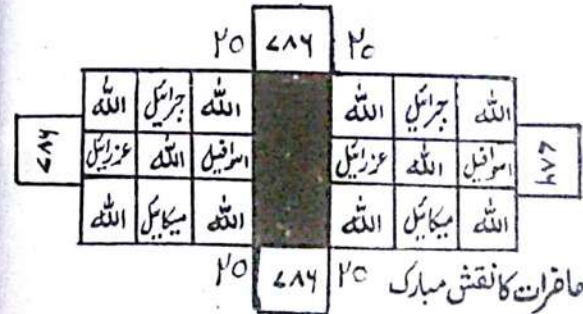 ۲۵ ۷۸۶ ۲۵
اللہ جبرائیل اللہ اللہ جبرائیل اللہ
۷۸۶ اسرافیل اللہ عزرائیل اسرافیل اللہ عزرائیل ۷۸۶
اللہ میکائیل اللہ اللہ میکائیل اللہ
۲۵ ۷۸۶ ۲۵
حاضرات کا نقش مبارک